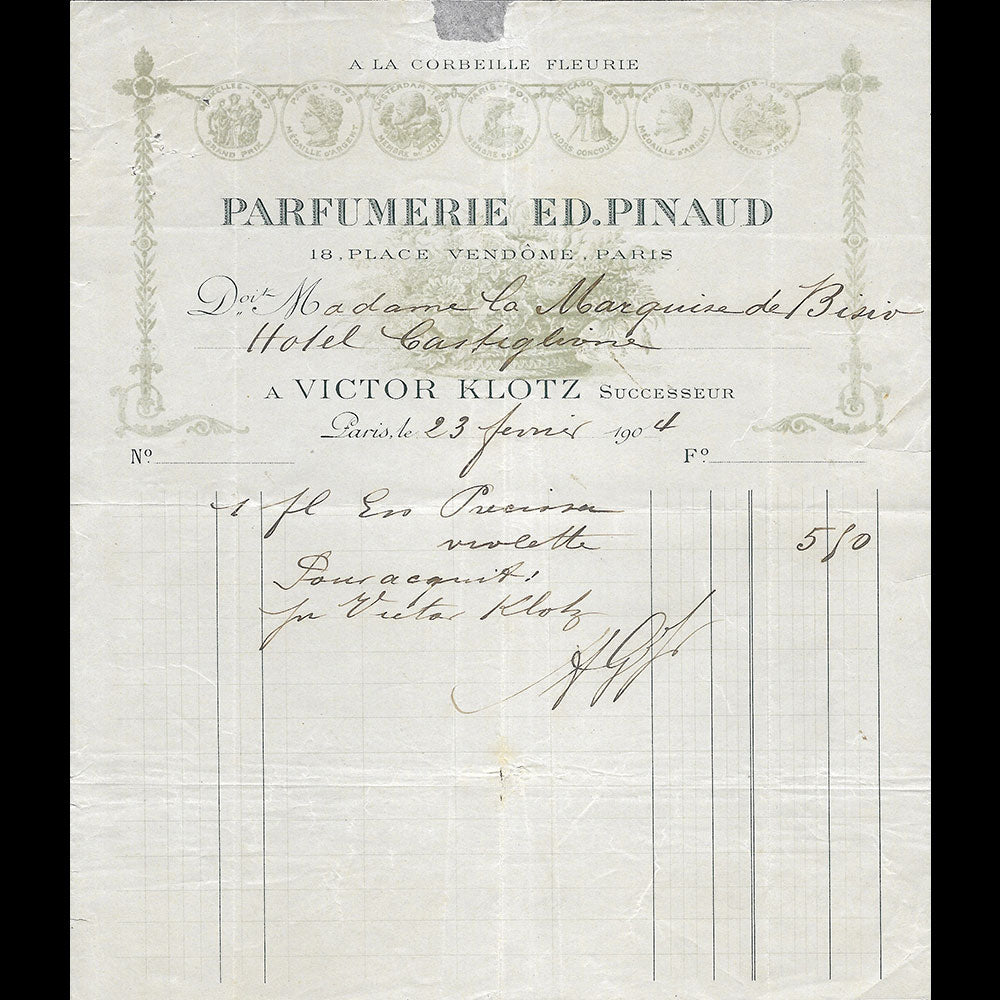 A LA CORBEILLE FLEURIE
BRUXELLES - 1897 GRAND PRIX
PARIS - 1878 MÉDAILLE D'ARGENT
AMSTERDAM - 1883 MEMBRE DU JURY
PARIS - 1900 MEMBRE DU JURY
CHICAGO 1893 HORS CONCOURS
PARIS - 1867 MÉDAILLE D'ARGENT
PARIS - 1889 GRAND PRIX
PARFUMERIE ED. PINAUD
18, PLACE VENDÔME, PARIS
Doit Madame la Marquise de Bisio
Hotel Castiglione
A VICTOR KLOTZ SUCCESSEUR
Paris, le 23 fevrier 1904
Nº Fº
1 fl Ess Precissa
violette 5 50
Pour acquit:
pr Victor Klotz